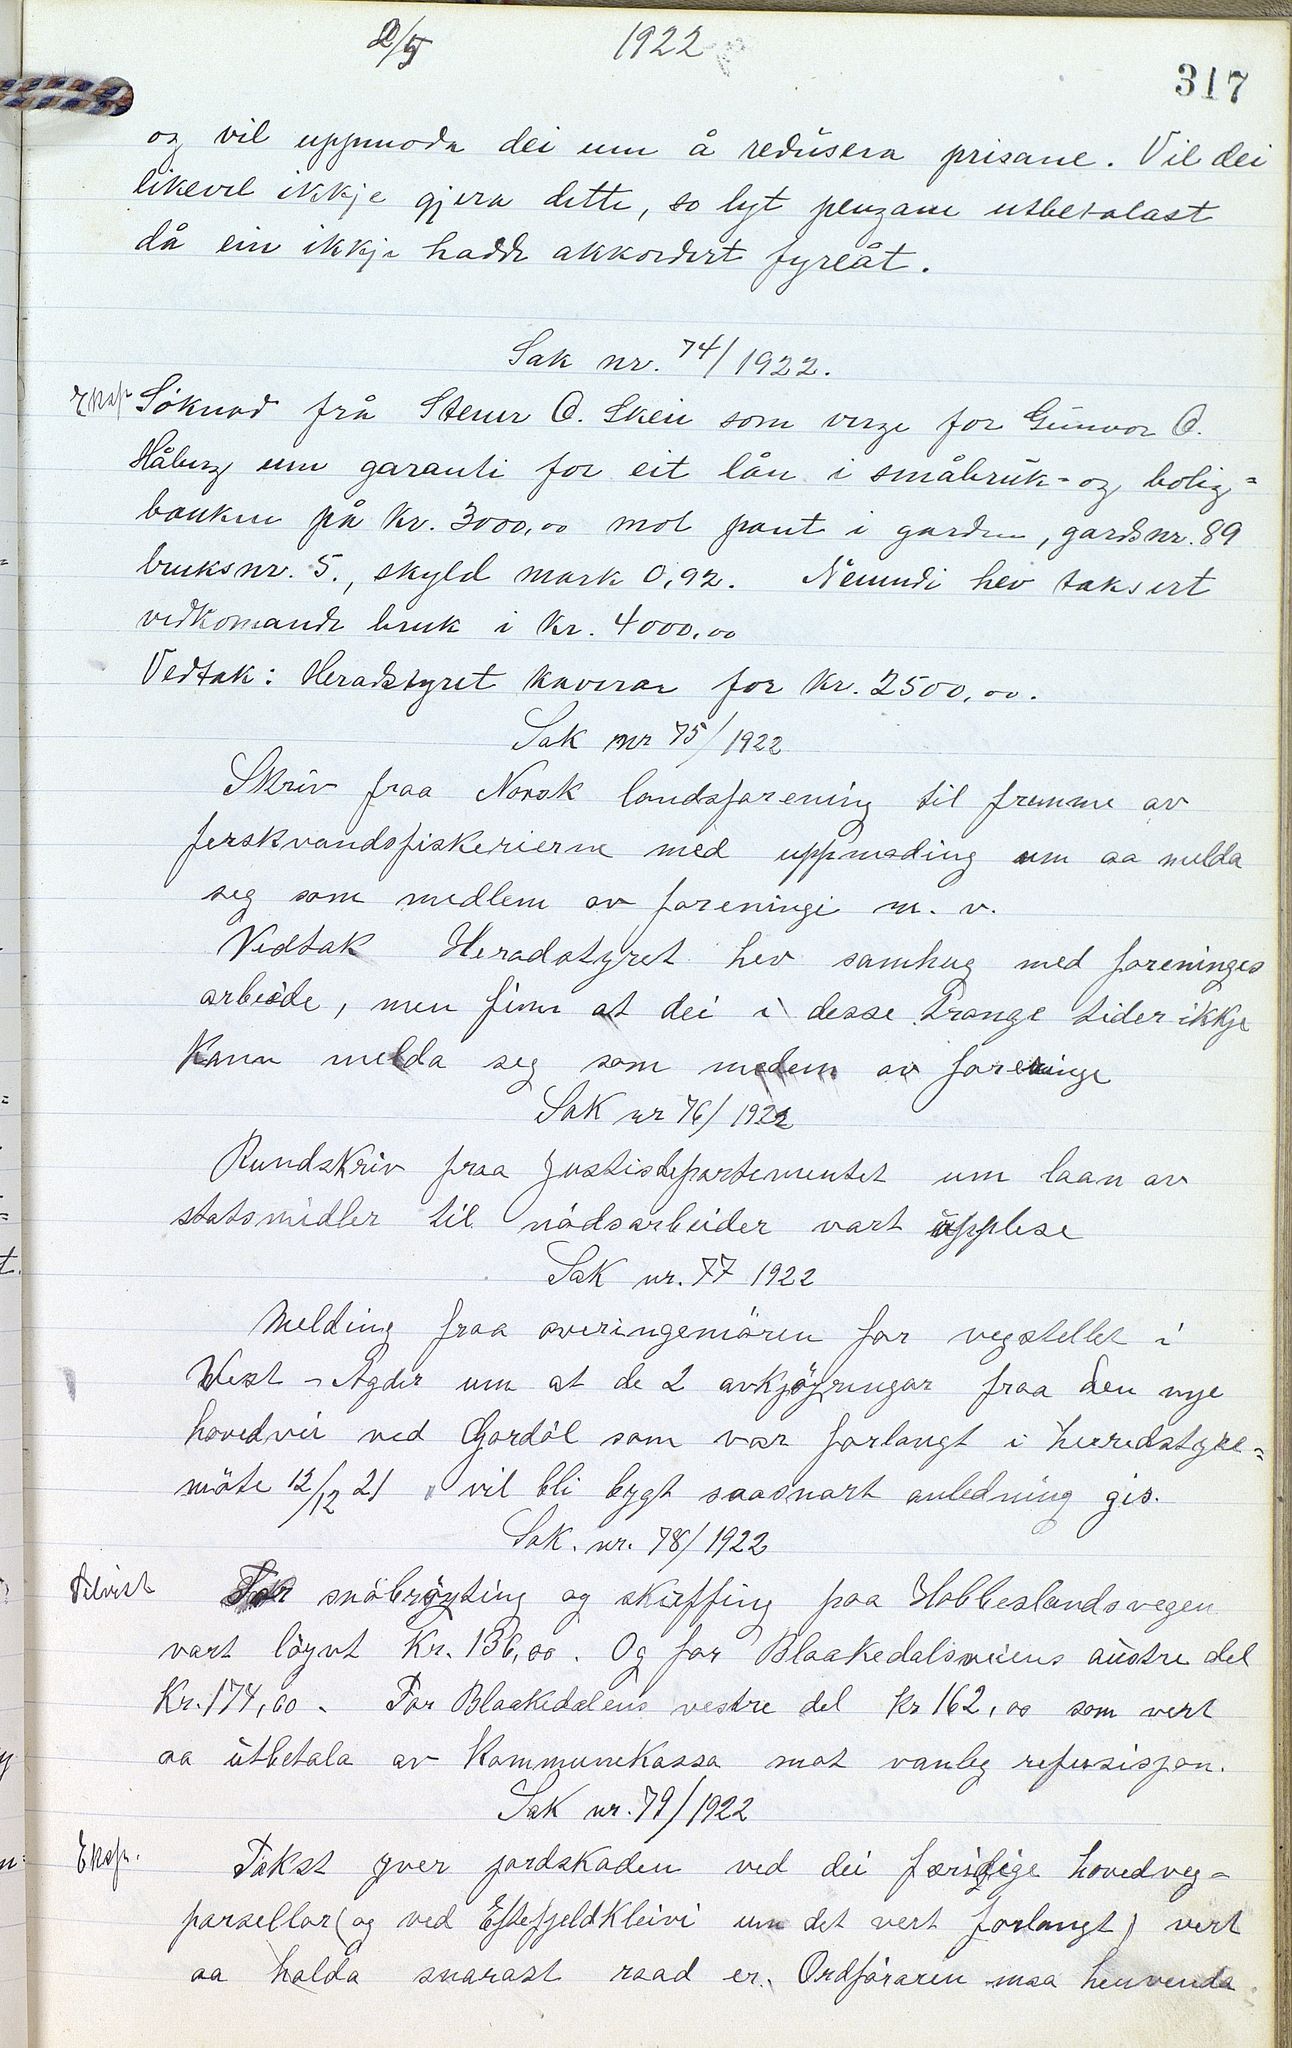 2/5 1922
317
og vil uppmoda dei um å redusera prisane. Vil dei
likevel ikkje gjera dette, so lyt pengane utbetalast
då ein ikkje hadde akkordert fyreåt.
Sak nr. 74/1922.
Eksp. Söknad frå Steinar O. Skeie som verge for Gunvor O.
Håberg um garanti for eit lån i småbruk- og bolig=
banken på kr. 3000,00 mot pant i garden, gardsnr. 89
bruksnr. 5., skyld mark 0,92. Nemndi hev taksert
vedkomande bruk i kr. 4000,00
Vedtak: Heradstyret kaverar for kr. 2500,00.
Sak nr 75/1922
Skriv fraa Norsk landsforening til fremme av
ferskvandsfiskerierne med uppmoding um aa melda
seg som medlem av foreningi m. v.
Vedtak Heradstyret hev samhug med foreninges
arbeide, men finn at dei i desse trange tider ikkje
kann melda seg som medem av foreninge
Sak nr 76/1922
Rundskriv fraa Justisdepartementet um laan av
statsmidler til nödsarbeider vart upplese
Sak nr. 77 1922
Melding fraa overingeniören for vegstellet i
Vest-Agder um at de 2 avkjöyringar fraa den nye
hovedvei ved Gordöl som var forlangt i herredstyre=
möte 12/12 21 vil bli bygt saasnart anledning gis.
Sak. nr. 78/1922
Tilvist For snöbröyting og skuffing paa Hobbeslandsvegen
vart löyvt Kr. 136,00. Og for Blaakedalsveiens austre del
Kr. 174,00. For Blaakedalens vestre del kr 162,00 som vert
aa utbetala av Kommunekassa mot vanleg refusisjon.
Sak nr. 79/1922
Eksp. Takst yver jordskaden ved dei færdige hovedveg-
parsellar (og ved Eftefjeldkleivi um det vert forlangt) vert
aa halda snarast raad er. Ordföraren maa henvenda